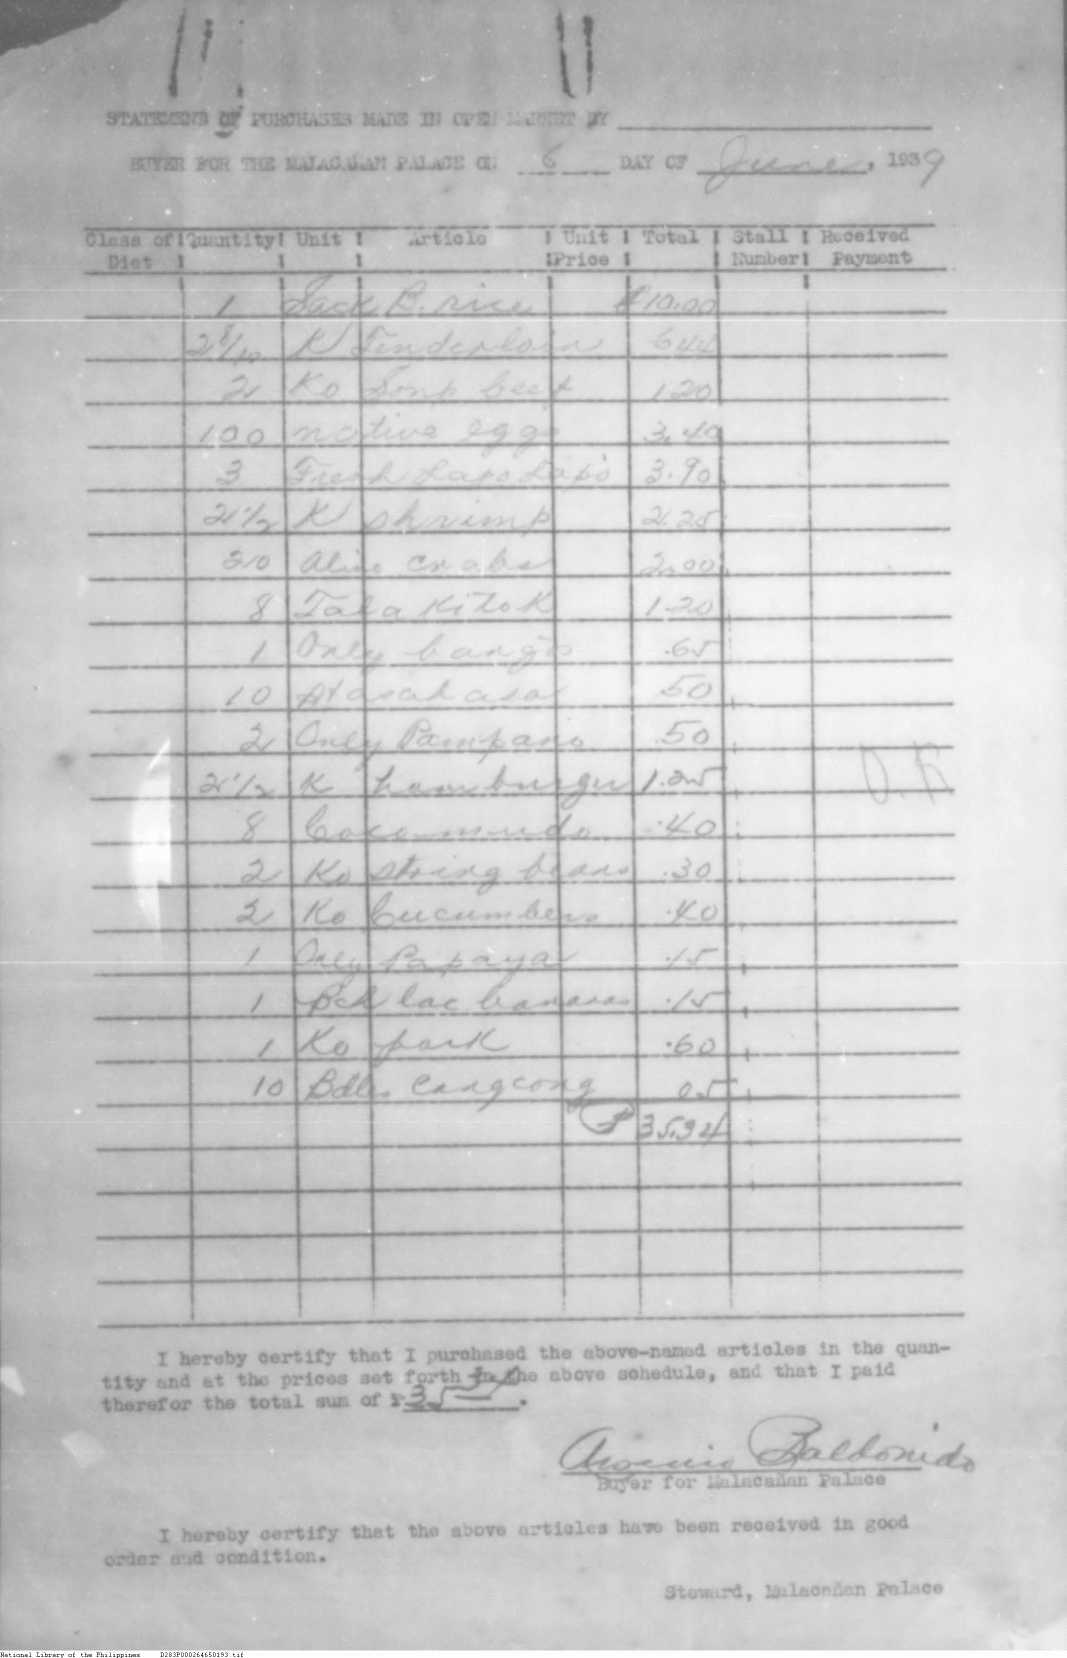 STATEMENT OF PURCHASES MADE IN OPEN MARKET BY
BUYER FOR THE MALACAÑAN PALACE ON 6 DAY OF June, 1939
Class of Diet Quantity Unit Article Unit Price Total Stall Number Received Payment
1 Sack B. rice ₱10.00
2 8/10 K Tenderloin 6.44
2 Ko Soup beef 1.20
100 native eggs 3.40
3 Fresh Lapo Lapo 3.90
2 1/2 K shrimp 2.25
20 alive crabs 2.00
8 Talakitok 1.20
1 Only bangos .65
10 50
2 Only Pampano .50
2 1/2 K hamburger 1.25
O.K
8 .40
2 Ko string beans .30
2 Ko Cucumbers .40
1 Only Papaya .15
1 Bch lac bananas .15
1 Ko pork .60
10 Bdls Cangcong 05
₱ 35.34
I hereby certify that I purchased the above-named articles in the quan-
tity and at the prices set forth in the above schedule, and that I paid
therefor the total sum of ₱ 35 34.
Baldonido
Buyer for Malacañan Palace
I hereby certify that the above articles have been received in good
order and condition.
Steward, Malacañan Palace
National Library of the Philippines D283P000264650193.tif